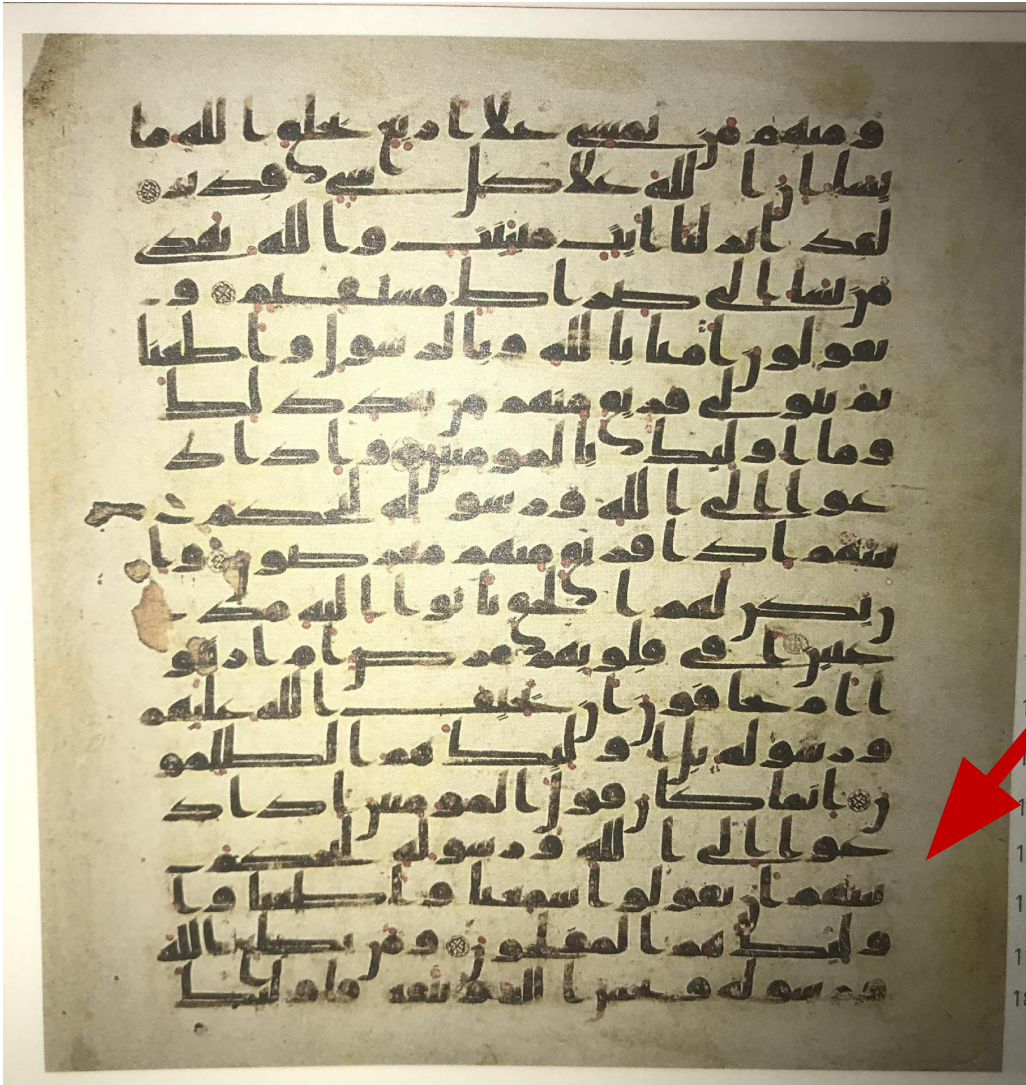 ومنهم من يمشي علا اربع يخلق الله ما
يشا ان الله علا كل شي قدير
لقد انزلنا ايت مبينت والله يهدي
من يشا الى صراط مستقيم و
يقولون امنا بالله وبالرسول واطعنا
ثم يتولى فريق منهم من بعد ذلك
وما اوليك بالمومنين واذا د
عوا الى الله ورسوله ليحكم ب
ينهم اذا فريق منهم معرضون وا
ن يكن لهم الحق ياتوا اليه مذ
عنين ا في قلوبهم مرض ام ارتابو
ا ام يخافون ان يحيف الله عليهم
ورسوله بل اوليك هم الظلمو
ن انما كان قول المومنين اذا د
عوا الى الله ورسوله ليحكم ب
ينهم ان يقولوا سمعنا واطعنا وا
وليك هم المفلحون ومن يطع الله
ورسوله ويخش الله ويتقه فاوليك